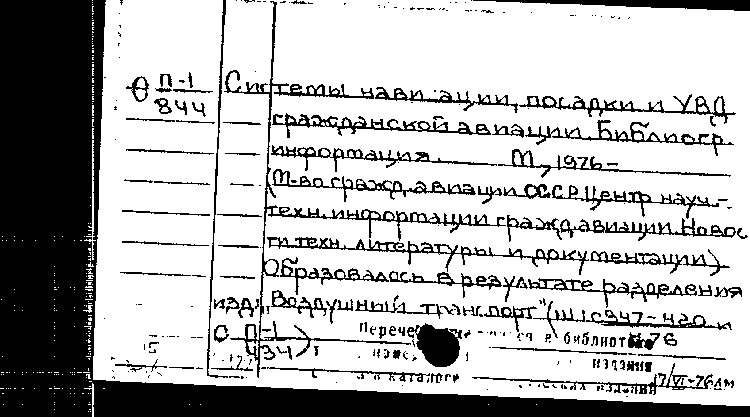 Ѳ П-1/844
Системы навигации, посадки и УВД
гражданской авиации. Библиогр.
информация. М., 1976-
(М-во гражд. авиации СССР. Центр науч.-
техн. информации гражд. авиации. Новос
ти техн. литературы и документации).
Образовалось в результате разделения
изд. „Воздушный транспорт"
О П-1/434)
Перече в библиоте
издания
каталоге изданий 17/VI-76